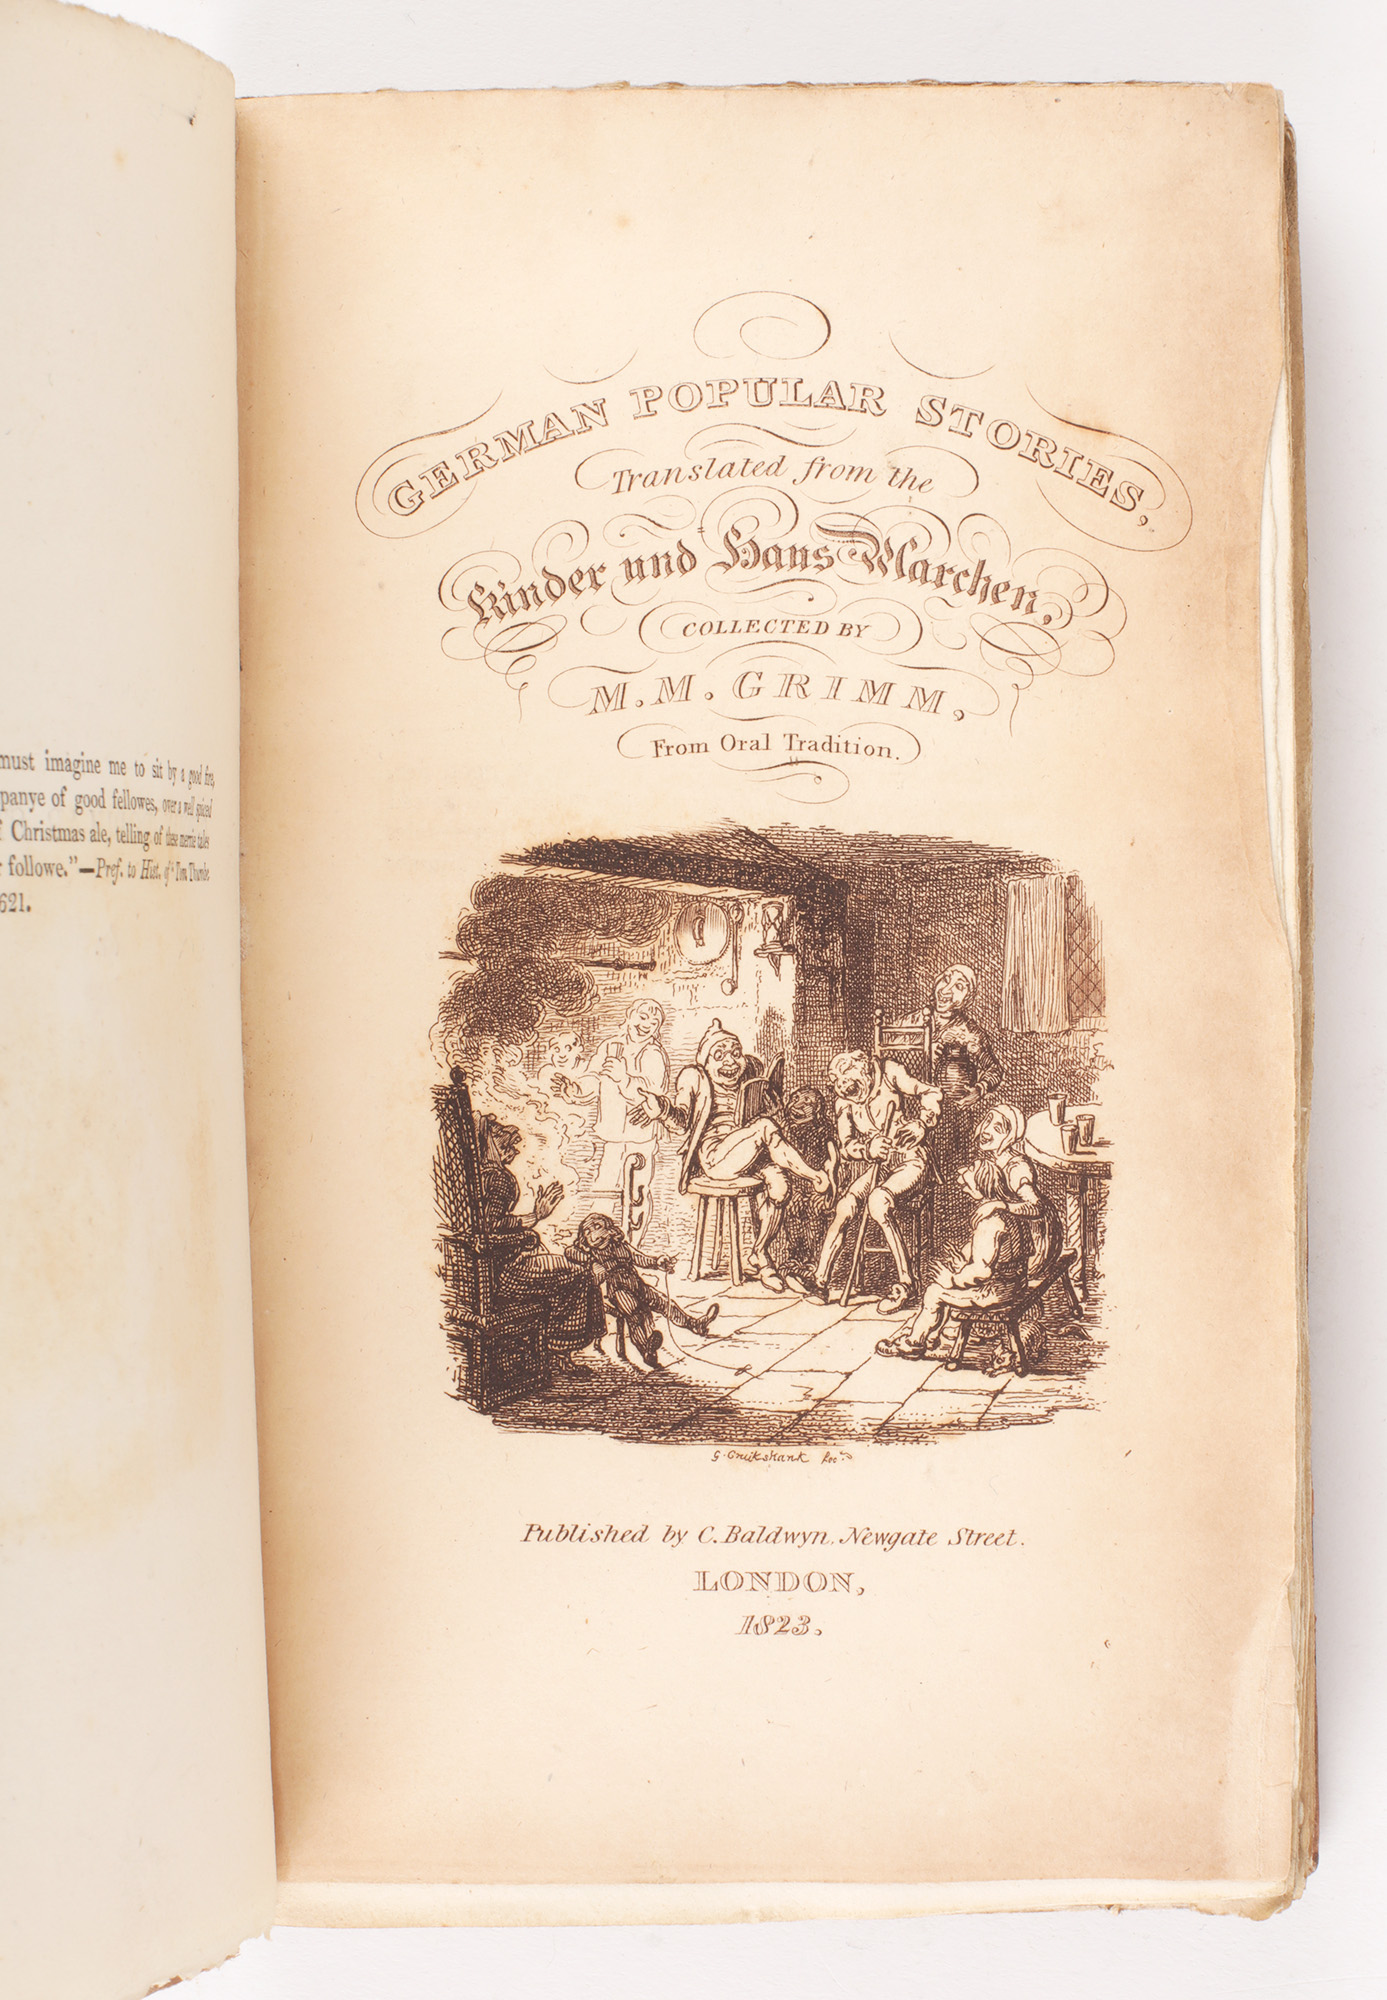 must imagine me to sit by a good fire,
panye of good fellowes, over a well spiced
Christmas ale, telling of these merrie tales
followe."—Pref. to Hist. of Tom Thumbe
621.
GERMAN POPULAR STORIES,
Translated from the
Kinder und Haus Marchen,
COLLECTED BY
M. M. GRIMM,
From Oral Tradition.
G. Cruikshank fec.
Published by C. Baldwyn, Newgate Street.
LONDON,
1823.